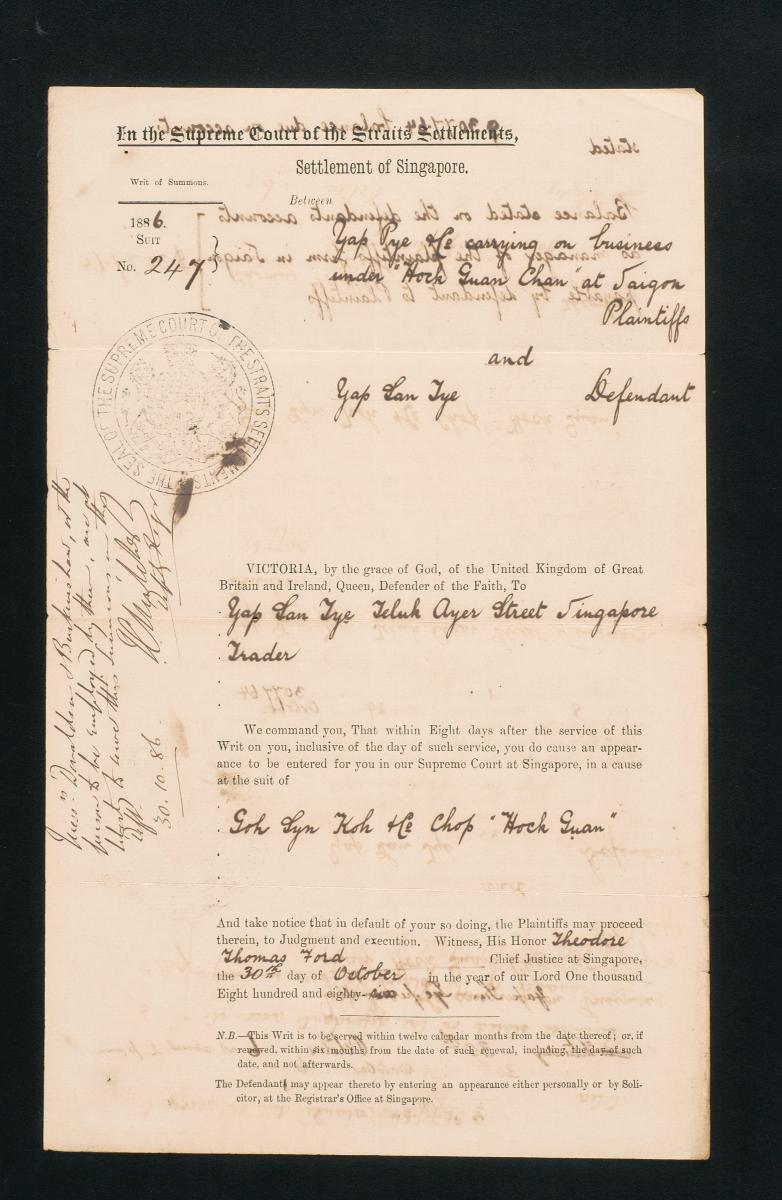 In the Supreme Court of the Straits Settlements,
Settlement of Singapore.
Writ of Summons.
Between
1886.
Suit
No. 247
Yap Pye & Co carrying on business
under "Hock Guan Chan" at Saigon
Plaintiffs
and
Yap San Tye Defendant
THE SEAL OF THE SUPREME COURT OF THE STRAITS SETTLEMENTS
VICTORIA, by the grace of God, of the United Kingdom of Great
Britain and Ireland, Queen, Defender of the Faith, To
Yap San Tye Teluk Ayer Street Singapore
Trader
We command you, That within Eight days after the service of this
Writ on you, inclusive of the day of such service, you do cause an appear-
ance to be entered for you in our Supreme Court at Singapore, in a cause
at the suit of
Goh Syn Koh & Co Chop "Hock Guan"
And take notice that in default of your so doing, the Plaintiffs may proceed
therein, to Judgment and execution. Witness, His Honor Theodore
Thomas Ford Chief Justice at Singapore,
the 30th day of October in the year of our Lord One thousand
Eight hundred and eighty-six
N.B.—This Writ is to be served within twelve calendar months from the date thereof; or, if
renewed, within six months from the date of such renewal, including the day of such
date, and not afterwards.
The Defendant may appear thereto by entering an appearance either personally or by Soli-
citor, at the Registrar's Office at Singapore.
Messrs Donaldson & Burkinshaw, or the
person to be employed by them, are at
liberty to serve this Summons
30.10.86.